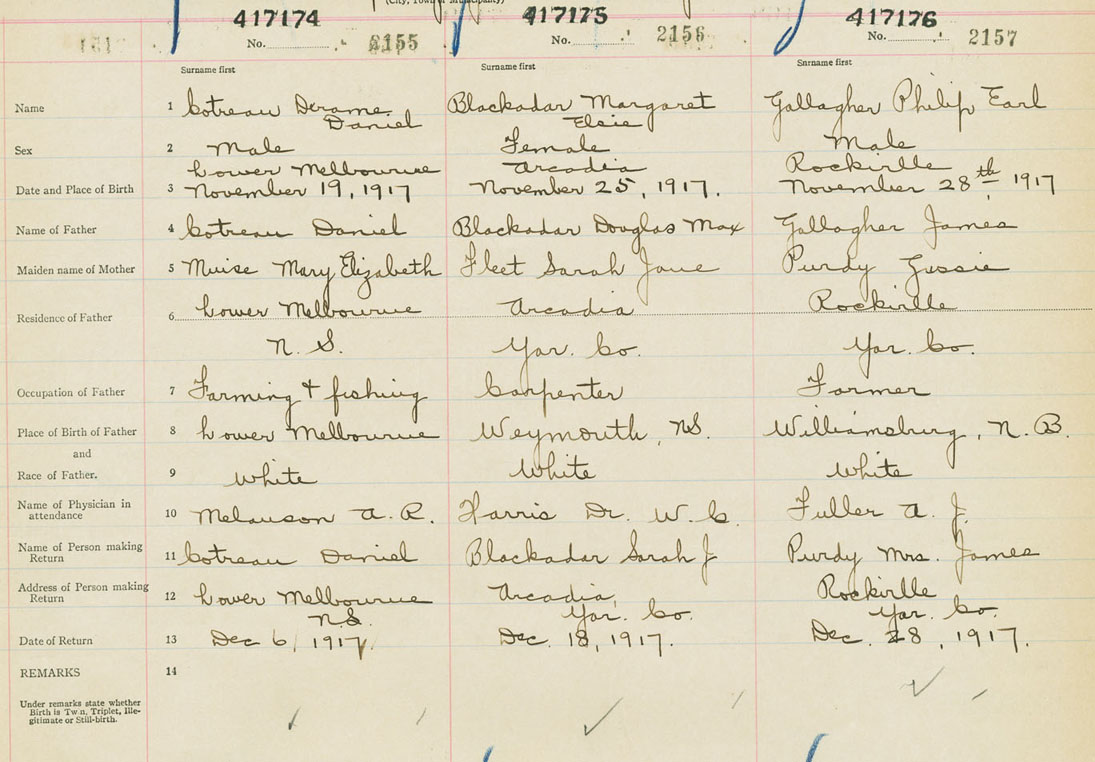 (City, Town or Municipality)
417174 417175 417176
No. 2155 No. 2156 No. 2157
Surname first Surname first Surname first
Name 1 Cotreau Derome Blackadar Margaret Gallagher Philip Earl
Daniel Elsie
Sex 2 Male Female Male
Lower Melbourne Arcadia Rockville
Date and Place of Birth 3 November 19, 1917 November 25, 1917. November 28th 1917
Name of Father 4 Cotreau Daniel Blackadar Douglas Max Gallagher James
Maiden name of Mother 5 Muise Mary Elizabeth Fleet Sarah Jane Purdy Gussie
Residence of Father 6 Lower Melbourne Arcadia Rockville
N. S. Yar. Co. Yar. Co.
Occupation of Father 7 Farming + fishing Carpenter Farmer
Place of Birth of Father 8 Lower Melbourne Weymouth, NS. Williamsburg, N. B.
and
Race of Father. 9 White White White
Name of Physician in attendance 10 Melanson A. R. Harris Dr. W. C. Fuller A. J.
Name of Person making Return 11 Cotreau Daniel Blackadar Sarah J Purdy Mrs. James
Address of Person making Return 12 Lower Melbourne Arcadia, Rockville
N.S. Yar. Co. Yar. Co.
Date of Return 13 Dec 6, 1917. Dec. 18, 1917. Dec. 28, 1917.
REMARKS 14
Under remarks state whether
Birth is Twin, Triplet, Ille-
gitimate or Still-birth.